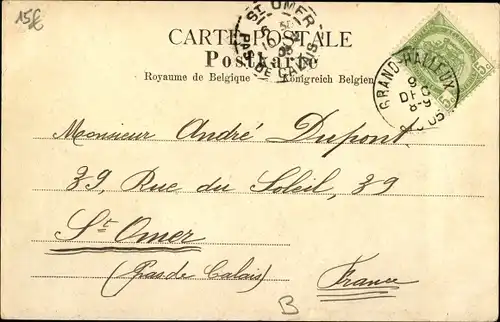 15€
ST OMER
PAS-DE-CALAIS
CARTE POSTALE
Postkarte
Royaume de Belgique
Königreich Belgien
GRAND-HALLEUX
8
DEC
8-9
Monsieur André Dupont
39, Rue du Soleil, 39
St Omer
(Pas de Calais)
France
B